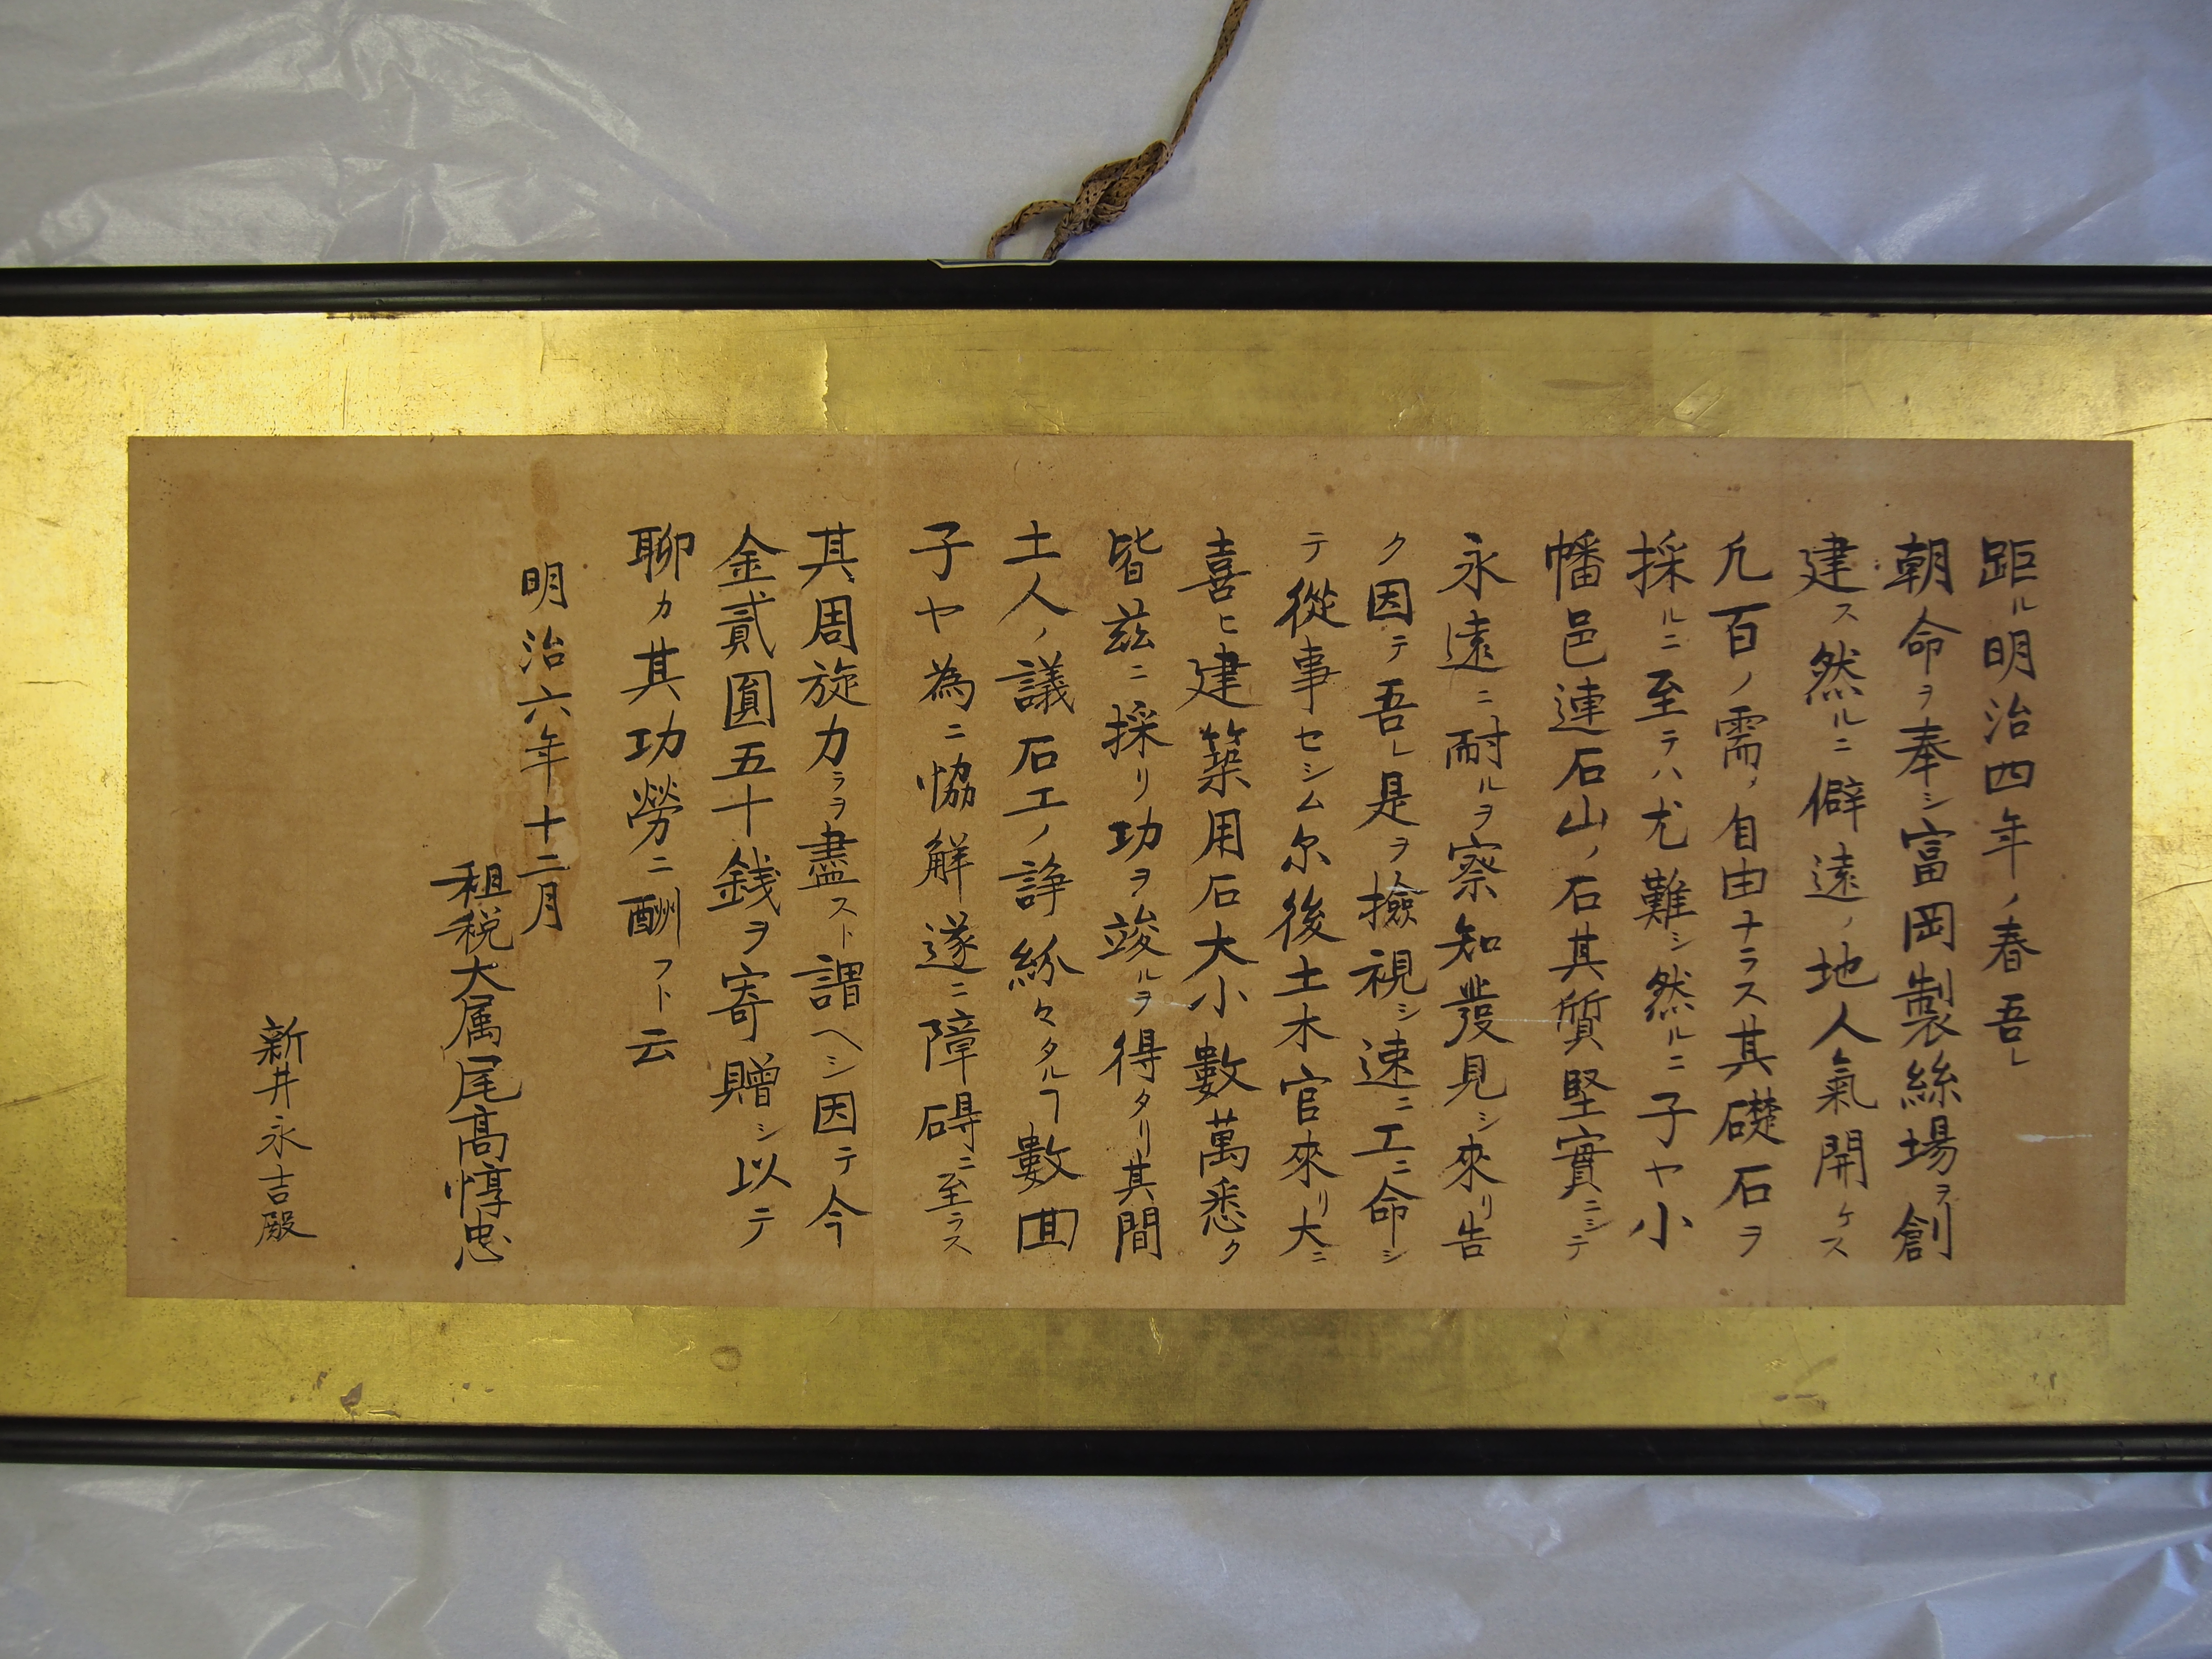 距ル明治四年ノ春吾レ
朝命ヲ奉シ富岡製絲場ヲ創
建ス然ルニ僻遠ノ地人氣開ケス
凢百ノ需メ自由ナラス其礎石ヲ
採ルニ至テハ尤難シ然ルニ子ヤ小
幡邑連石山ノ石其質堅實ニシテ
永遠ニ耐ルヲ察知發見シ來リ告
ク因テ吾レ是ヲ撿視シ速ニ工ニ命シ
テ從事セシム尓後土木官來リ大ニ
喜ヒ建築用石大小數萬悉ク
皆茲ニ採リ功ヲ竣ルヲ得タリ其間
土人ノ議石工ノ諍紛々タルヿ數囬
子ヤ為ニ恊解遂ニ障碍ニ至ラス
其周旋力ラヲ盡スト謂ヘシ因テ今
金貳圓五十銭ヲ寄贈シ以テ
聊カ其功勞ニ酬フト云
明治六年十二月
租税大属尾髙惇忠
新井永吉殿